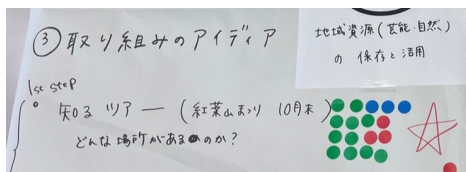 ③ 取り組みのアイディア
地域資源(芸能・自然)
の 保存と活用
1st step
。知る ツアー (紅葉山まつり 10月末)
どんな場所があるのか?